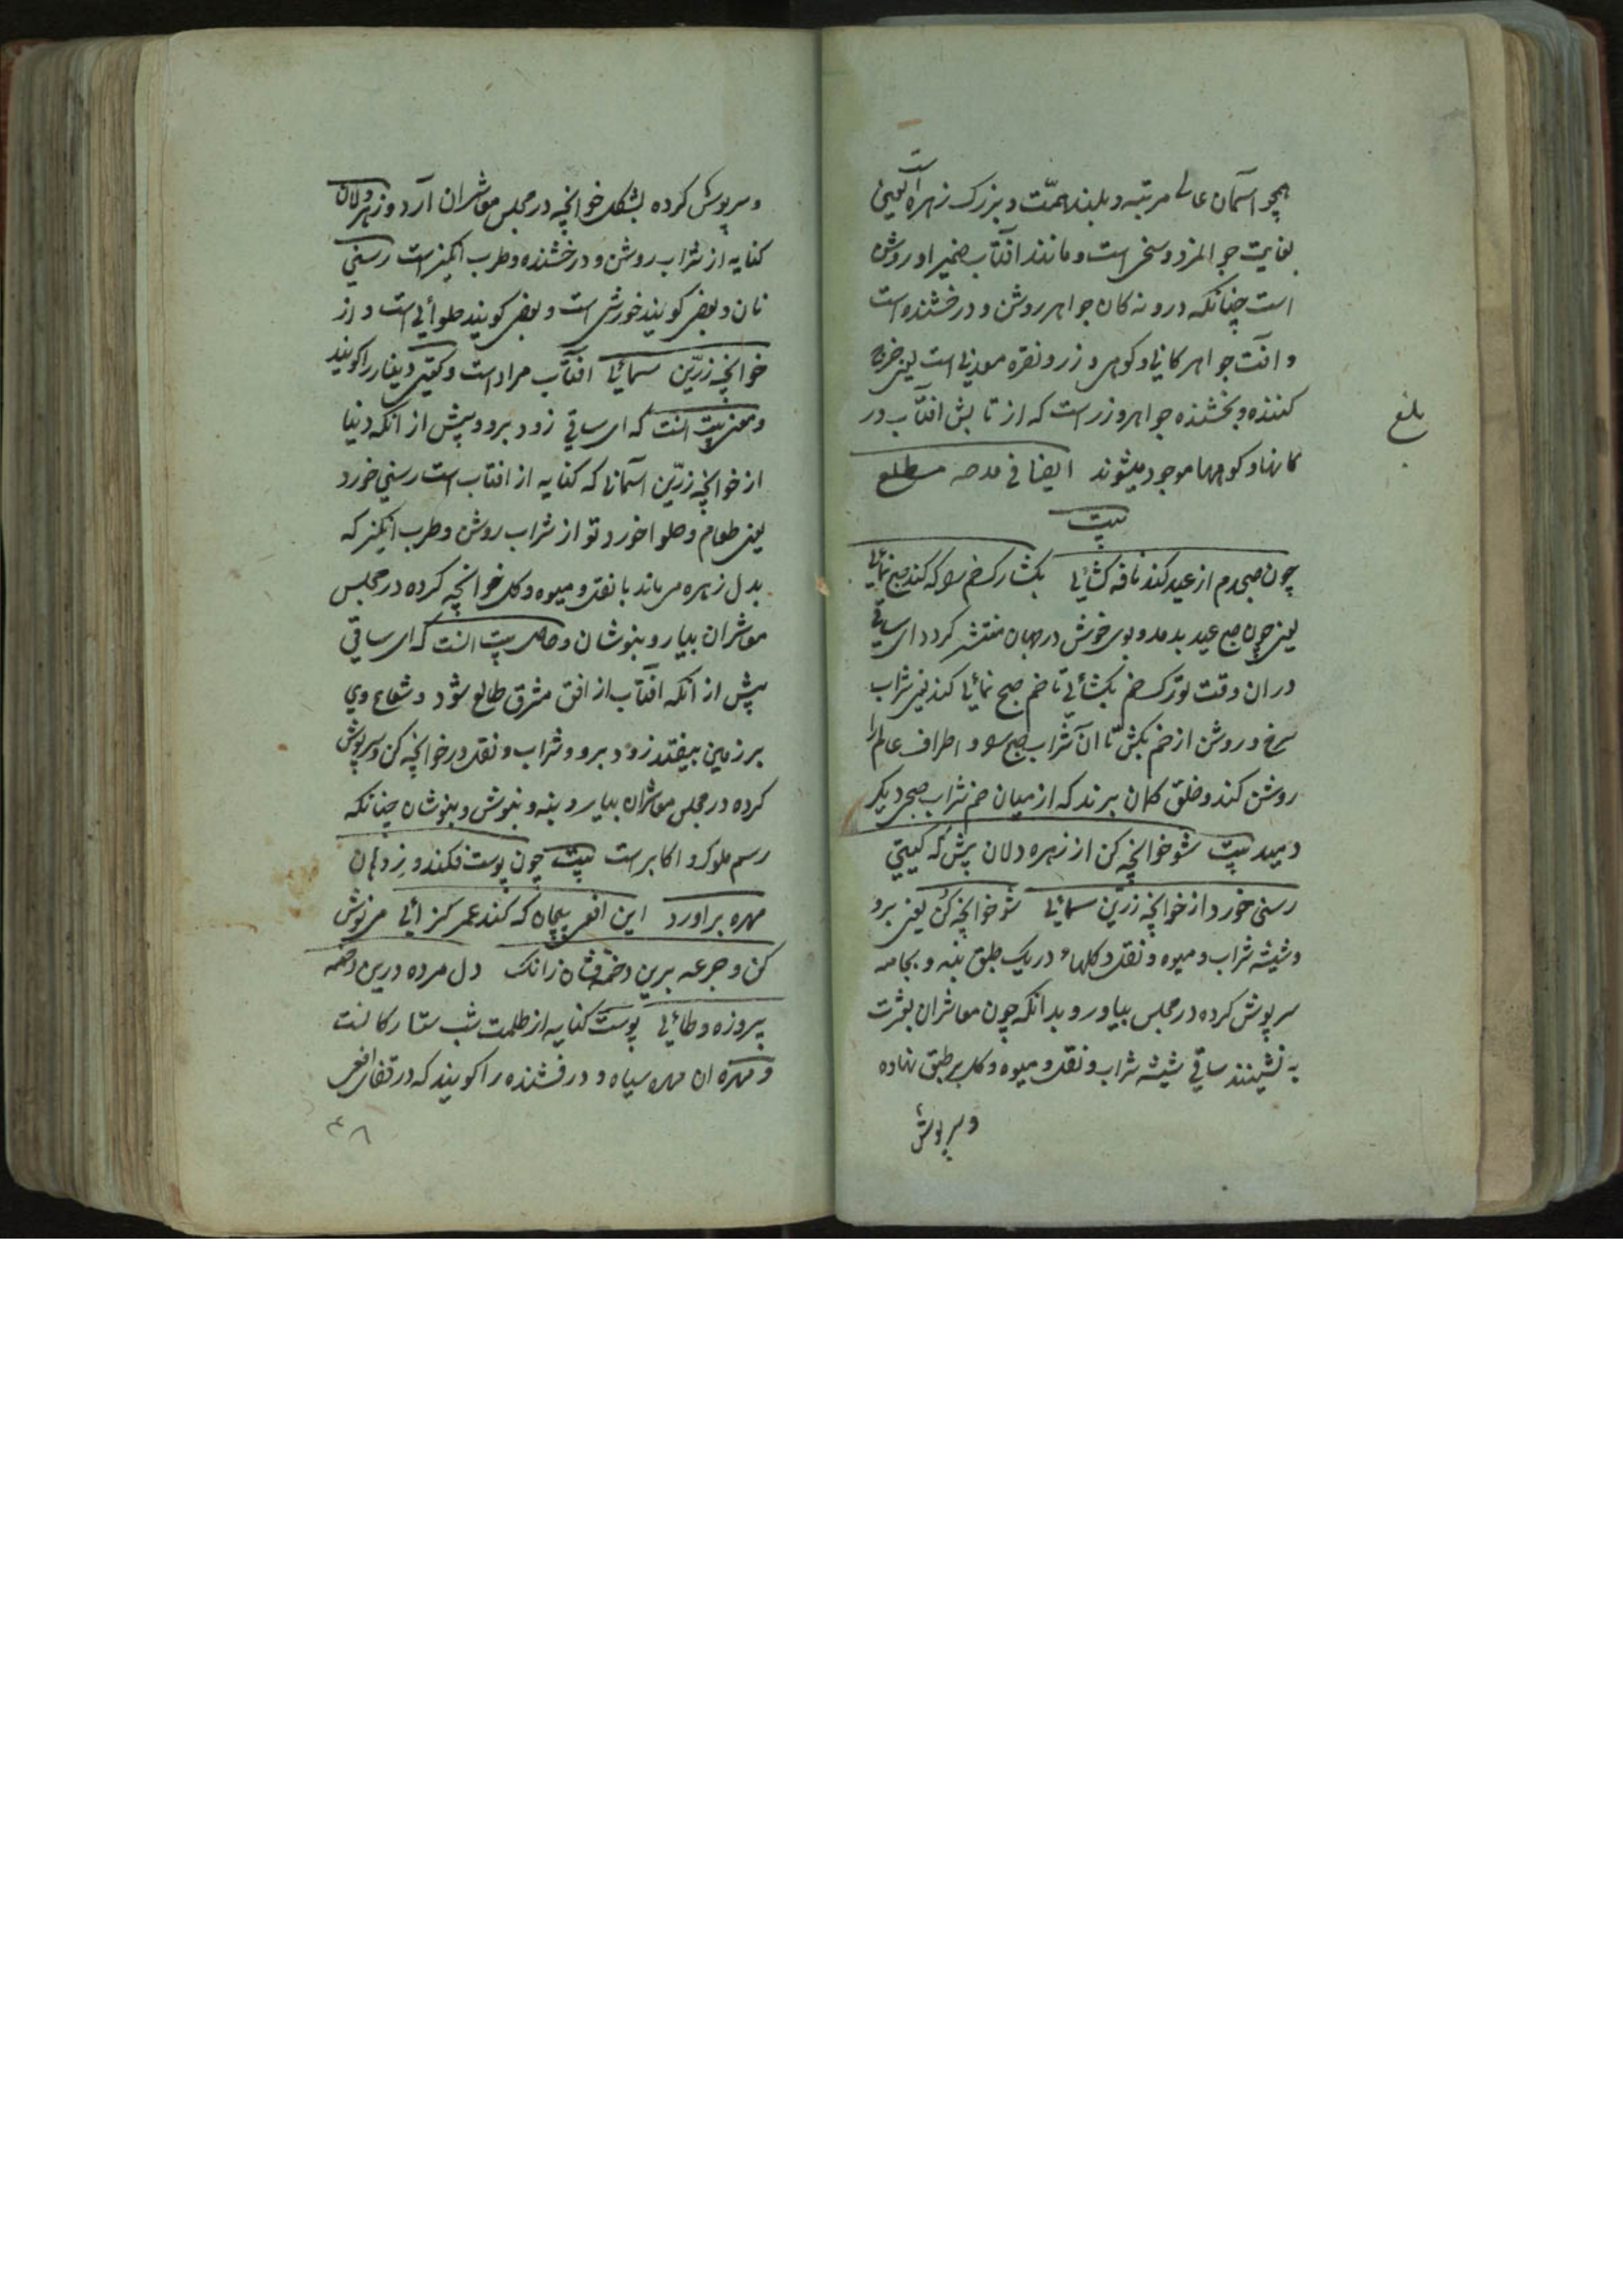 همچو آسمان عالی مرتبه و بلند همّت و بزرک زهره است یعنی
بغایت جوانمرد و سخی است و مانند افتاب ضمیر او روشن
است چنانکه درونه کان جواهر روشن و درخشنده است
و آفت جواهر کانی و کوهی و زر و نقره معدنی است یعنی خرج
کننده و بخشنده جواهر و زر است که از تابش افتاب در
کانها و کوهها موجود میشوند ایضا فی مدحه مطلع
بلغ
بیت
چون صبحدم از عید کند نافه کشائی بکشا رک خم را که کند صبح نمائی
یعنی چون صبح عید بدمد و بوی خوش در جهان منتشر کردد ای ساقی
در ان وقت تو رک خم بکشائی تا خم صبح نمائی کند یعنی شراب
سرخ و روشن از خم بکش تا ان شراب صبح شود و اطراف عالم را
روشن کند و خلق کمان برند که از میان خم شراب صبحی دیکر
دمید بیت شو خوانچه کن از زهره دلان پیش که کیتی
رسنی خورد از خوانچه زرّین سمائی شو خوانچه کن یعنی برو
و شیشه شراب و میوه و نقل و کلها در یک طبق بنه و بجامه
سرپوش کرده در مجلس بیاور و بدانکه چون معاشران بعشرت
به نشینند ساقی شیشه شراب و نقل و میوه و کل بر طبق نهاده
وسرپوش
وسرپوش کرده بشکل خوانچه در مجلس معاشران آرد و زهره دلان
کنایه از شراب روشن و درخشنده و طرب انکیز است رسنی
نان و بعضی کویند خورش است و بعضی کویند حلوائی است و از
خوانچه زرّین سمائی افتاب مراد است و کیتی دنیا را کویند
و معنی بیت انست که ای ساقی زود برو و پیش از انکه دنیا
از خوانچه زرّین آسمانی که کنایه از افتاب است رسنی خورد
یعنی طعام و حلوا خورد تو از شراب روشن و طرب انکیز که
بدل زهره می ماند با نقل و میوه و کل خوانچه کرده در مجلس
معاشران بیار و بنوشان و حاصل بیت انست که ای ساقی
پیش از آنکه افتاب از افق مشرق طالع شود و شعاع وی
بر زمین بیفتد زود برو و شراب و نقل در خوانچه کن و سرپوش
کرده در مجلس معاشران بیار و بنه و بنوش و بنوشان چنانکه
رسم ملوک و اکابر است بیت چون پوست فکند و ز دهان
مهره براورد این افعی پیچان که کند عمر کزائی می نوش
کن و جرعه برین دخمه فشان زانک دل مرده درین دخمه
پیروزه وطائی پوست کنایه از ظلمت شب ستارکانست
و مهره ان مهره سیاه و درفشنده را کویند که در قفای افعی
۳۸